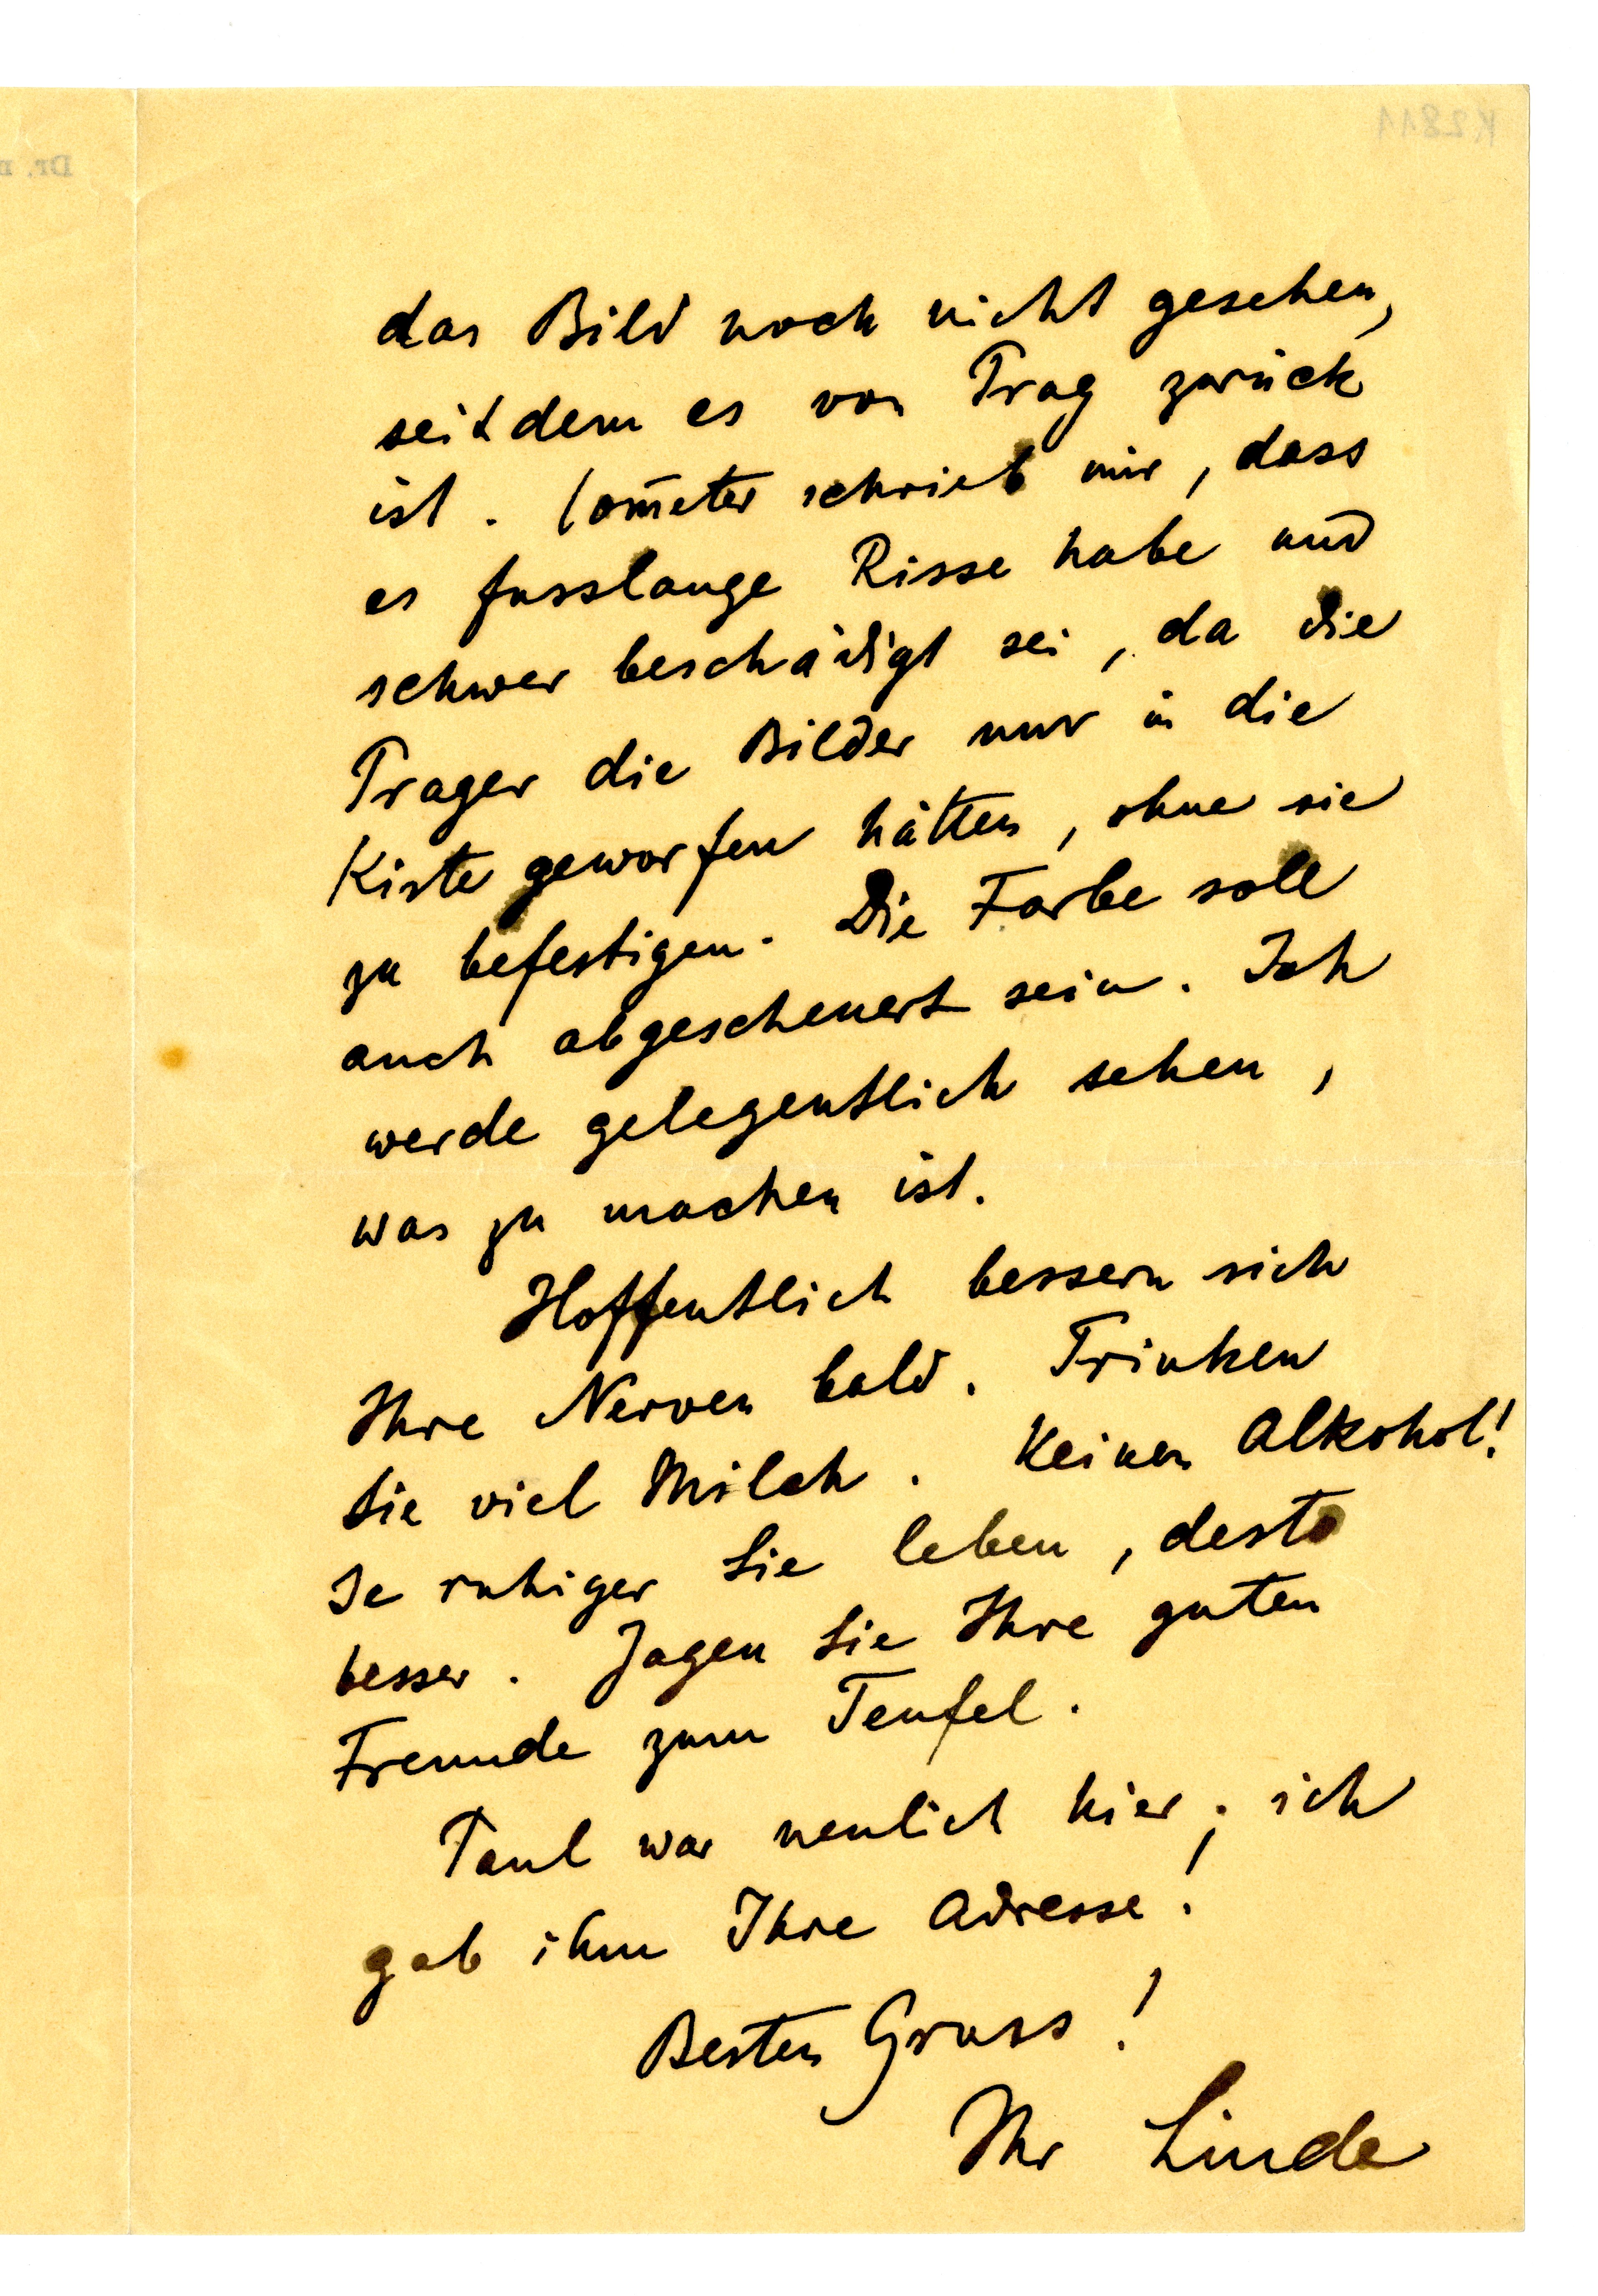 K2811
Dr.
das Bild noch nicht gesehen,
seitdem es von Prag zurück
ist. Com̅eter schrieb mir, dass
es fusslange Risse habe und
schwer beschädigt sei, da die
Prager die Bilder nur in die
Kiste geworfen hätten, ohne sie
zu befestigen. Die Farbe soll
auch abgescheuert sein. Ich
werde gelegentlich sehen,
was zu machen ist.
Hoffentlich bessern sich
Ihre Nerven bald. Trinken
Sie viel Milch. Keinen Alkohol!
Je ruhiger Sie leben, desto
besser. Jagen Sie Ihre guten
Freunde zum Teufel.
Paul war neulich hier; ich
gab ihm Ihre Adresse!
Besten Gruss!
Ihr Linde